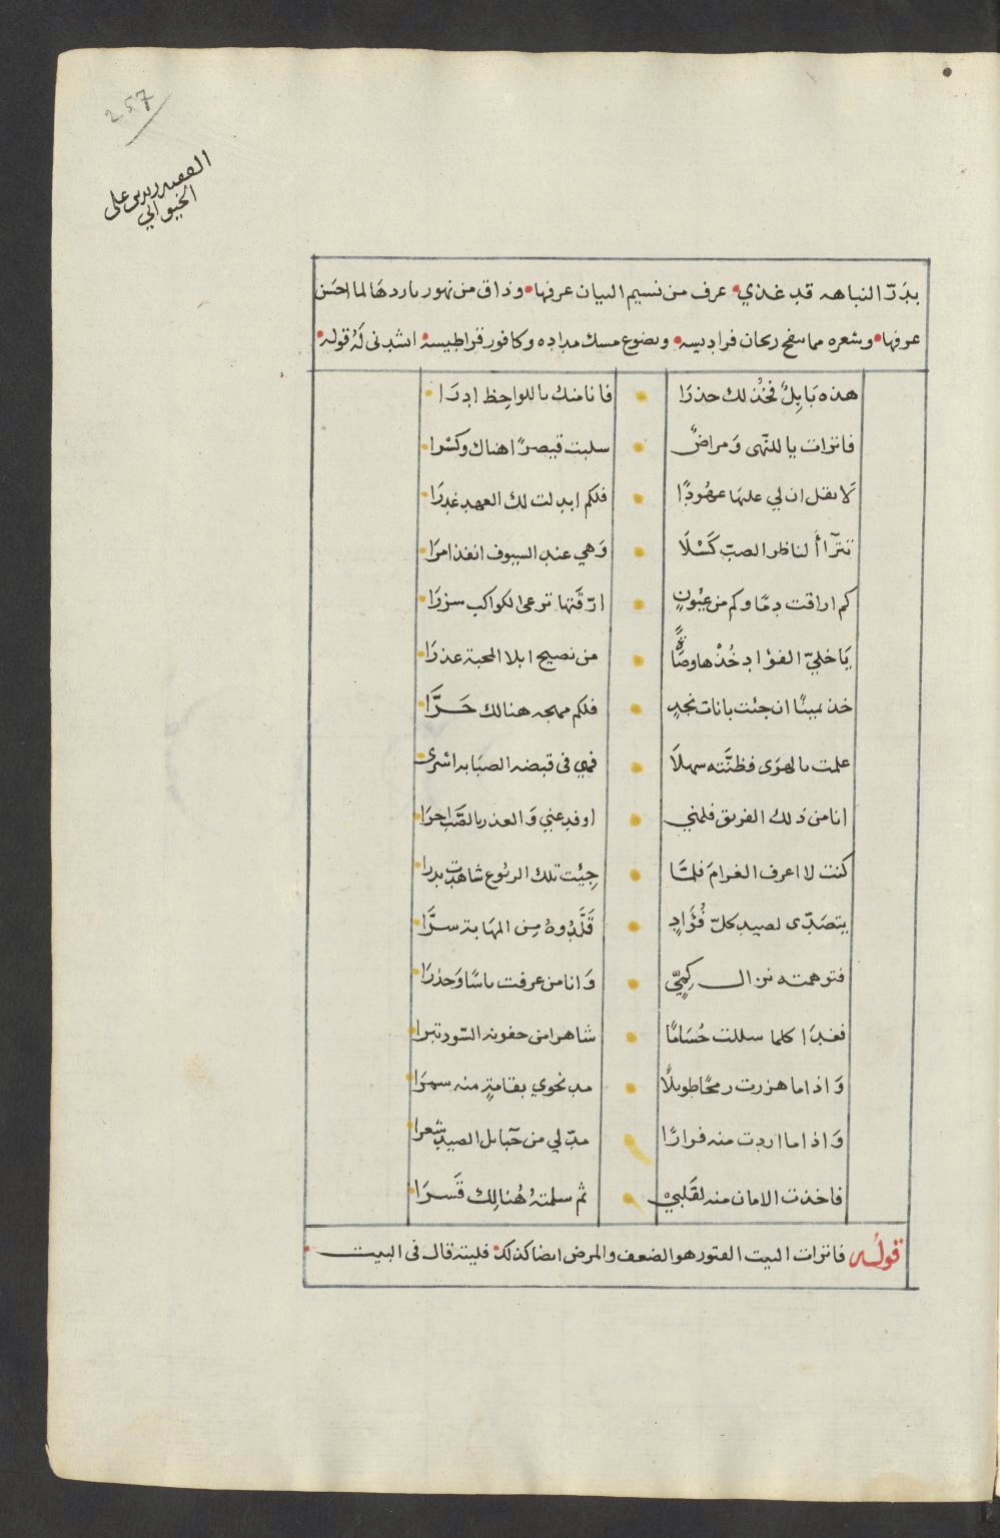 257
الفقيه زيد بن علي
الخيواني
بدَرّ النباهه قد غذي • عرف من نسيم البيان عرفها • وذاق من نهور باردهَا لما احسَن
عرفها • وشعره مما نفح ريحان فراديسه • وتضوع مسك مداده وكافور قراطيسهْ • انشدني لَهُ قولهْ •
هذه بَابِلٌ فخُذ لك حذرَا • فانا منك باللواحِظ ادرَا
فاترات يا للنّهى وَمراضٌ • سلبت قيصرًا هناك وكسْرا
لَا تقل ان لي عليهَا عهُودًا • فلكم ابدلت لك العهد غدرَا
تترآأ لناظر الصبّ كَسْلَا • وَهي عند السيوف انفذ امرَا
كم اراقت دمًا وكم من عيُونٍ • ارّقَتها ترعى الكواكب سزرَا
يَا خليّ الفؤاد خُذْها وصَاةً • من نصيح ابلا المحبة عذرَا
خذ يمينًا ان جئت بانات نجدٍ • فلكم مهجه هنالك حَرَّا
علمت بالهوَى فظنَّته سهلَا • فهي في قبضه الصبَابه اسرى
انا من ذلك الفريق فلمني • او فدعني وَالعذر بالصَّب احرَا
كنت لا اعرف الغرامَ فلمَّا • جِئت تلك الربُوع شاهدت بدرا
يتصَدّى لصيد كلّ فُؤادٍ • قَلَّدُوهُ مِن المهَابة سرًّا
فتوهمته نزال كِمِيّ • وَانا من عرفت باسًا وَحذرَا
فغدَا كلما سللت حُسَامًا • شاهرا من جفونه السّود تبرا
وَاذا ما هززت رمحًا طويلًا • مد نحوي بقامةٍ منه سمرَا
وَاذا ما اردت منه فرارًا • مدّ لي من حَبايل الصيد شعرا
فاخذت الامان منه لقَلبيْ • ثم سلمتهُ هُنالِك قَسرَا
قوله فاترات البيت الفتور هو الضعف والمرض ايضا كذلك • فليته قال في البيت